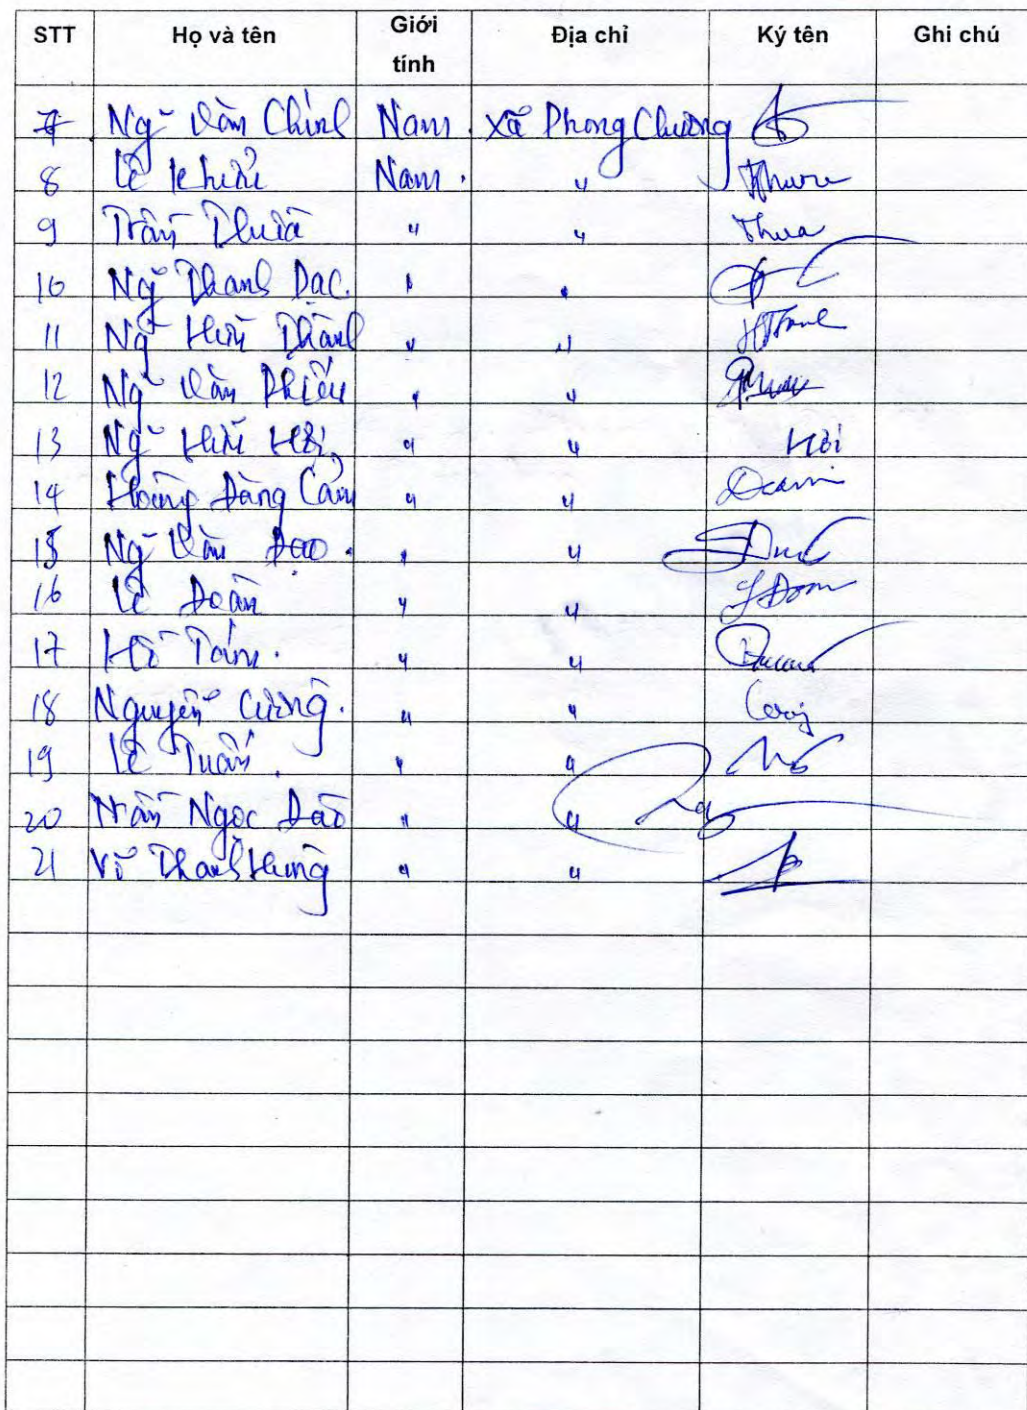 STT Họ và tên Giới tính Địa chỉ Ký tên Ghi chú
7 Ngỹ Văn Chính Nam. Xã Phong Chương
8 Lê Nam. "
9 Trần Thừa " " Thua
10 Ngỹ Thanh Đạc. " "
11 Ngỹ Hữu Thành " " HThanh
12 Ngỹ Văn Phiếu " "
13 Ngỹ Hữu Hỏi " " Hỏi
14 Hoàng Đăng Cẩm " " Dcam
15 Ngỹ Văn Đạo. " "
16 Lê Đoàn " " LĐoan
17 Hồ Tám. " "
18 Nguyễn Cường. " "
19 Lê Tuấn. " "
20 Trần Ngọc Đào " "
21 Võ Thanh Hưng " "